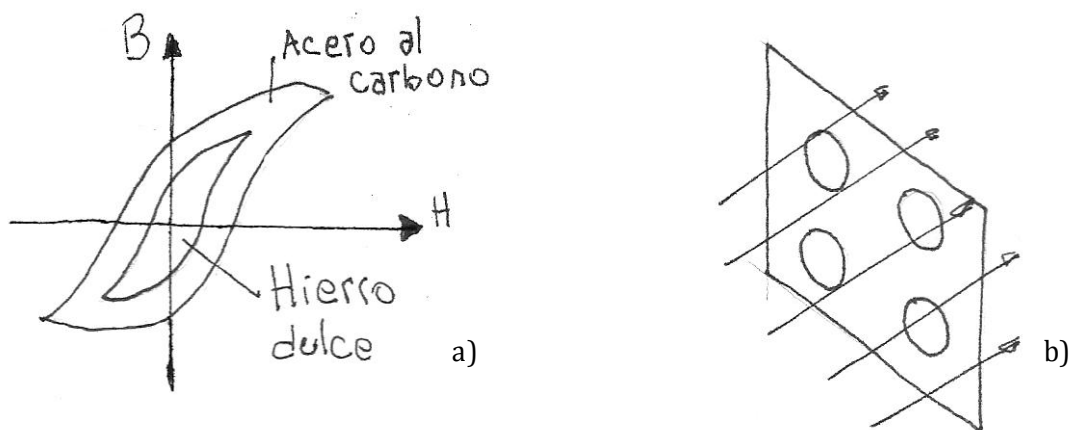 B
Acero al
carbono
H
Hierro
dulce
a)
b)